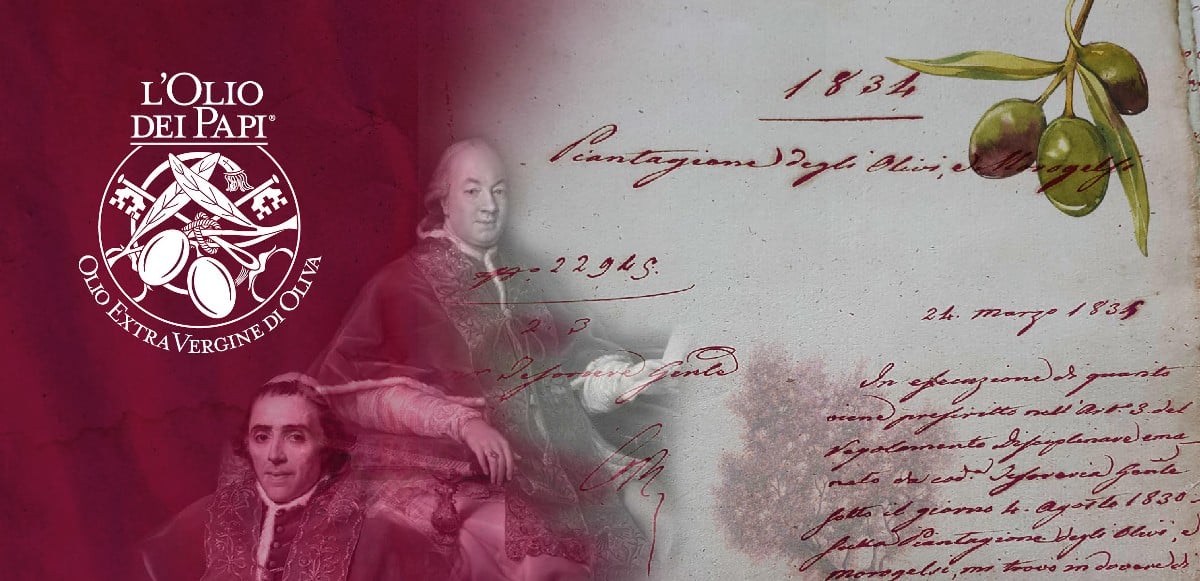 L'OLIO
DEI PAPI®
OLIO EXTRA VERGINE DI OLIVA
1834
Piantagione degli Olivi, e Morogelsi
No 22945.
2. 3
Tesoriere Genle
24. Marzo 1834
In esecuzione di quanto
viene prescritto nell'Arto 3. del
Regolamento disciplinare ema
nato da cod. Tesoreria Genle
sotto il giorno 4. Agosto 1830
sulla Piantagione degli Olivi, e
morogelsi, mi trovo in dovere di